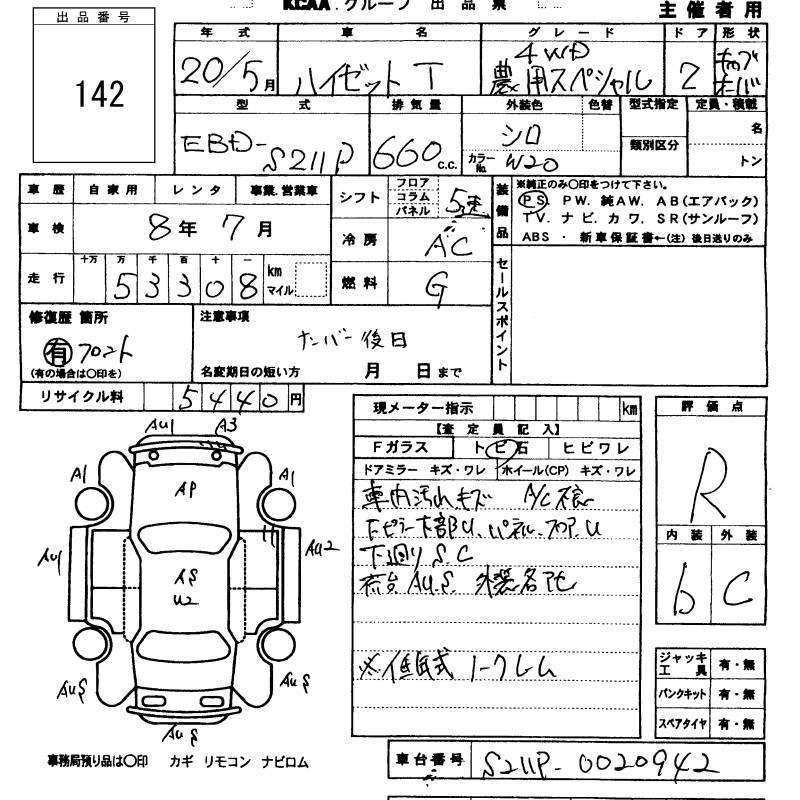 KCAA.グループ 出品票
主催者用
出品番号
142
年式 車名 グレード ドア 形状
20/5月 ハイゼット T 4WD 農用スペシャル 2
型式 排気量 外装色 色替 型式指定 定員・積載
EBD-S211P 660 c.c. シロ 名
カラーNo. W20 類別区分 トン
車歴 自家用 レンタ 事業.営業車 シフト フロア コラム パネル 5速
装備品 ※純正のみ〇印をつけて下さい。
PS. PW. 純AW. AB(エアバック)
TV. ナビ. カワ. SR(サンルーフ)
ABS ・ 新車保証書←(注) 後日送りのみ
車検 8年7月 冷房 AC
走行 十万 万 千 百 十 一 km マイル
53308 燃料 G
セールスポイント
修復歴 箇所 注意事項
有 フロント ナンバー後日
(有の場合は〇印を) 名変期日の短い方 月 日まで
リサイクル料 5440円
現メーター指示 km
評価点
【査定員記入】
Fガラス トビ石 ヒビワレ
ドアミラー キズ・ワレ ホイール(CP) キズ・ワレ
車内汚れキズ A/C
Fピラー下部U、パネル、フロアU
下廻りSC
荷台AU.S. 外装各アセ
※低年式 ノークレーム
R
内装 外装
b C
AU1 A3
A1 AP A1
AU1 AS U2 AU2
AUS AUS
AUS
ジャッキ工具 有・無
パンクキット 有・無
スペアタイヤ 有・無
事務局預り品は〇印 カギ リモコン ナビロム
車台番号 S211P-0020942